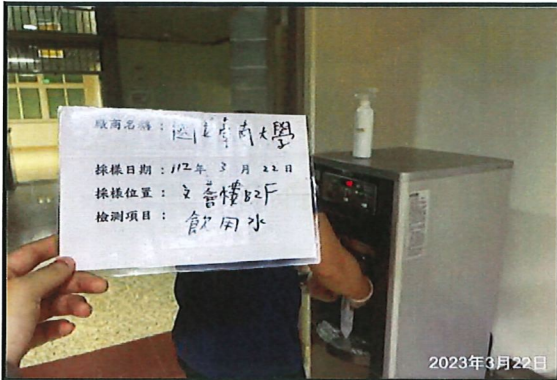 廠商名稱：國立臺南大學
採樣日期：112年3月22日
採樣位置：文薈樓B2F
檢測項目：飲用水
2023年3月22日